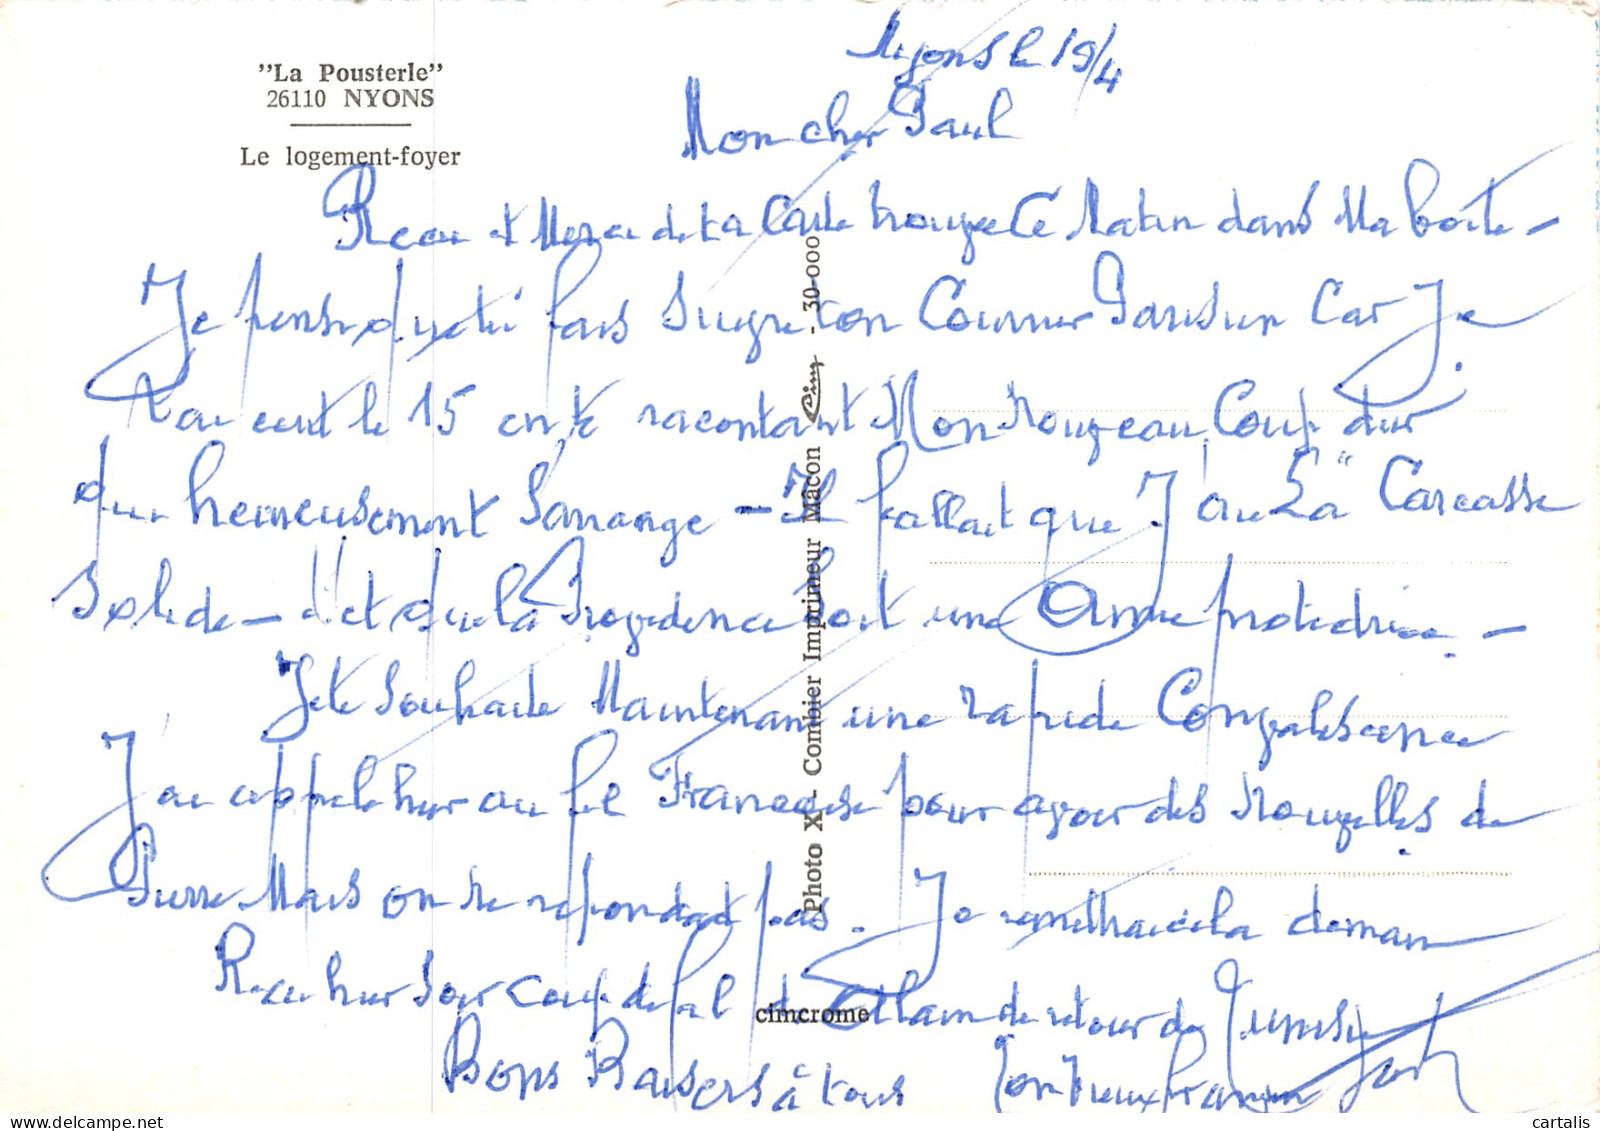 "La Pousterle"
26110 NYONS
Le logement-foyer
Nyons le 19/4
Mon cher Paul
Recu et Merci de ta Carte trouvée Ce Matin dans Ma boite -
Je pense que tu fais suivre ton Courrier Parisien Car Je
t'ai ecrit le 15 en te racontant Mon nouveau Coup dur
qui heureusement s'arrange - Il fallait que J'aie La "Carcasse
Solide - " et que la Providence soit une Amie protectrice -
Je te Souhaite Maintenant une rapide Convalescence
J'ai appele hier au fil Francoise pour avoir des nouvelles de
Pierre Mais on ne repondait pas. Je remettrai cela demain
Recu hier Soir coup de fil de Alain de retour de Tunisie
Bons Baisers à tous Ton Vieux
Photo X - Combier Imprimeur Mâcon Cim - 30-000
cimcrome
cartalis